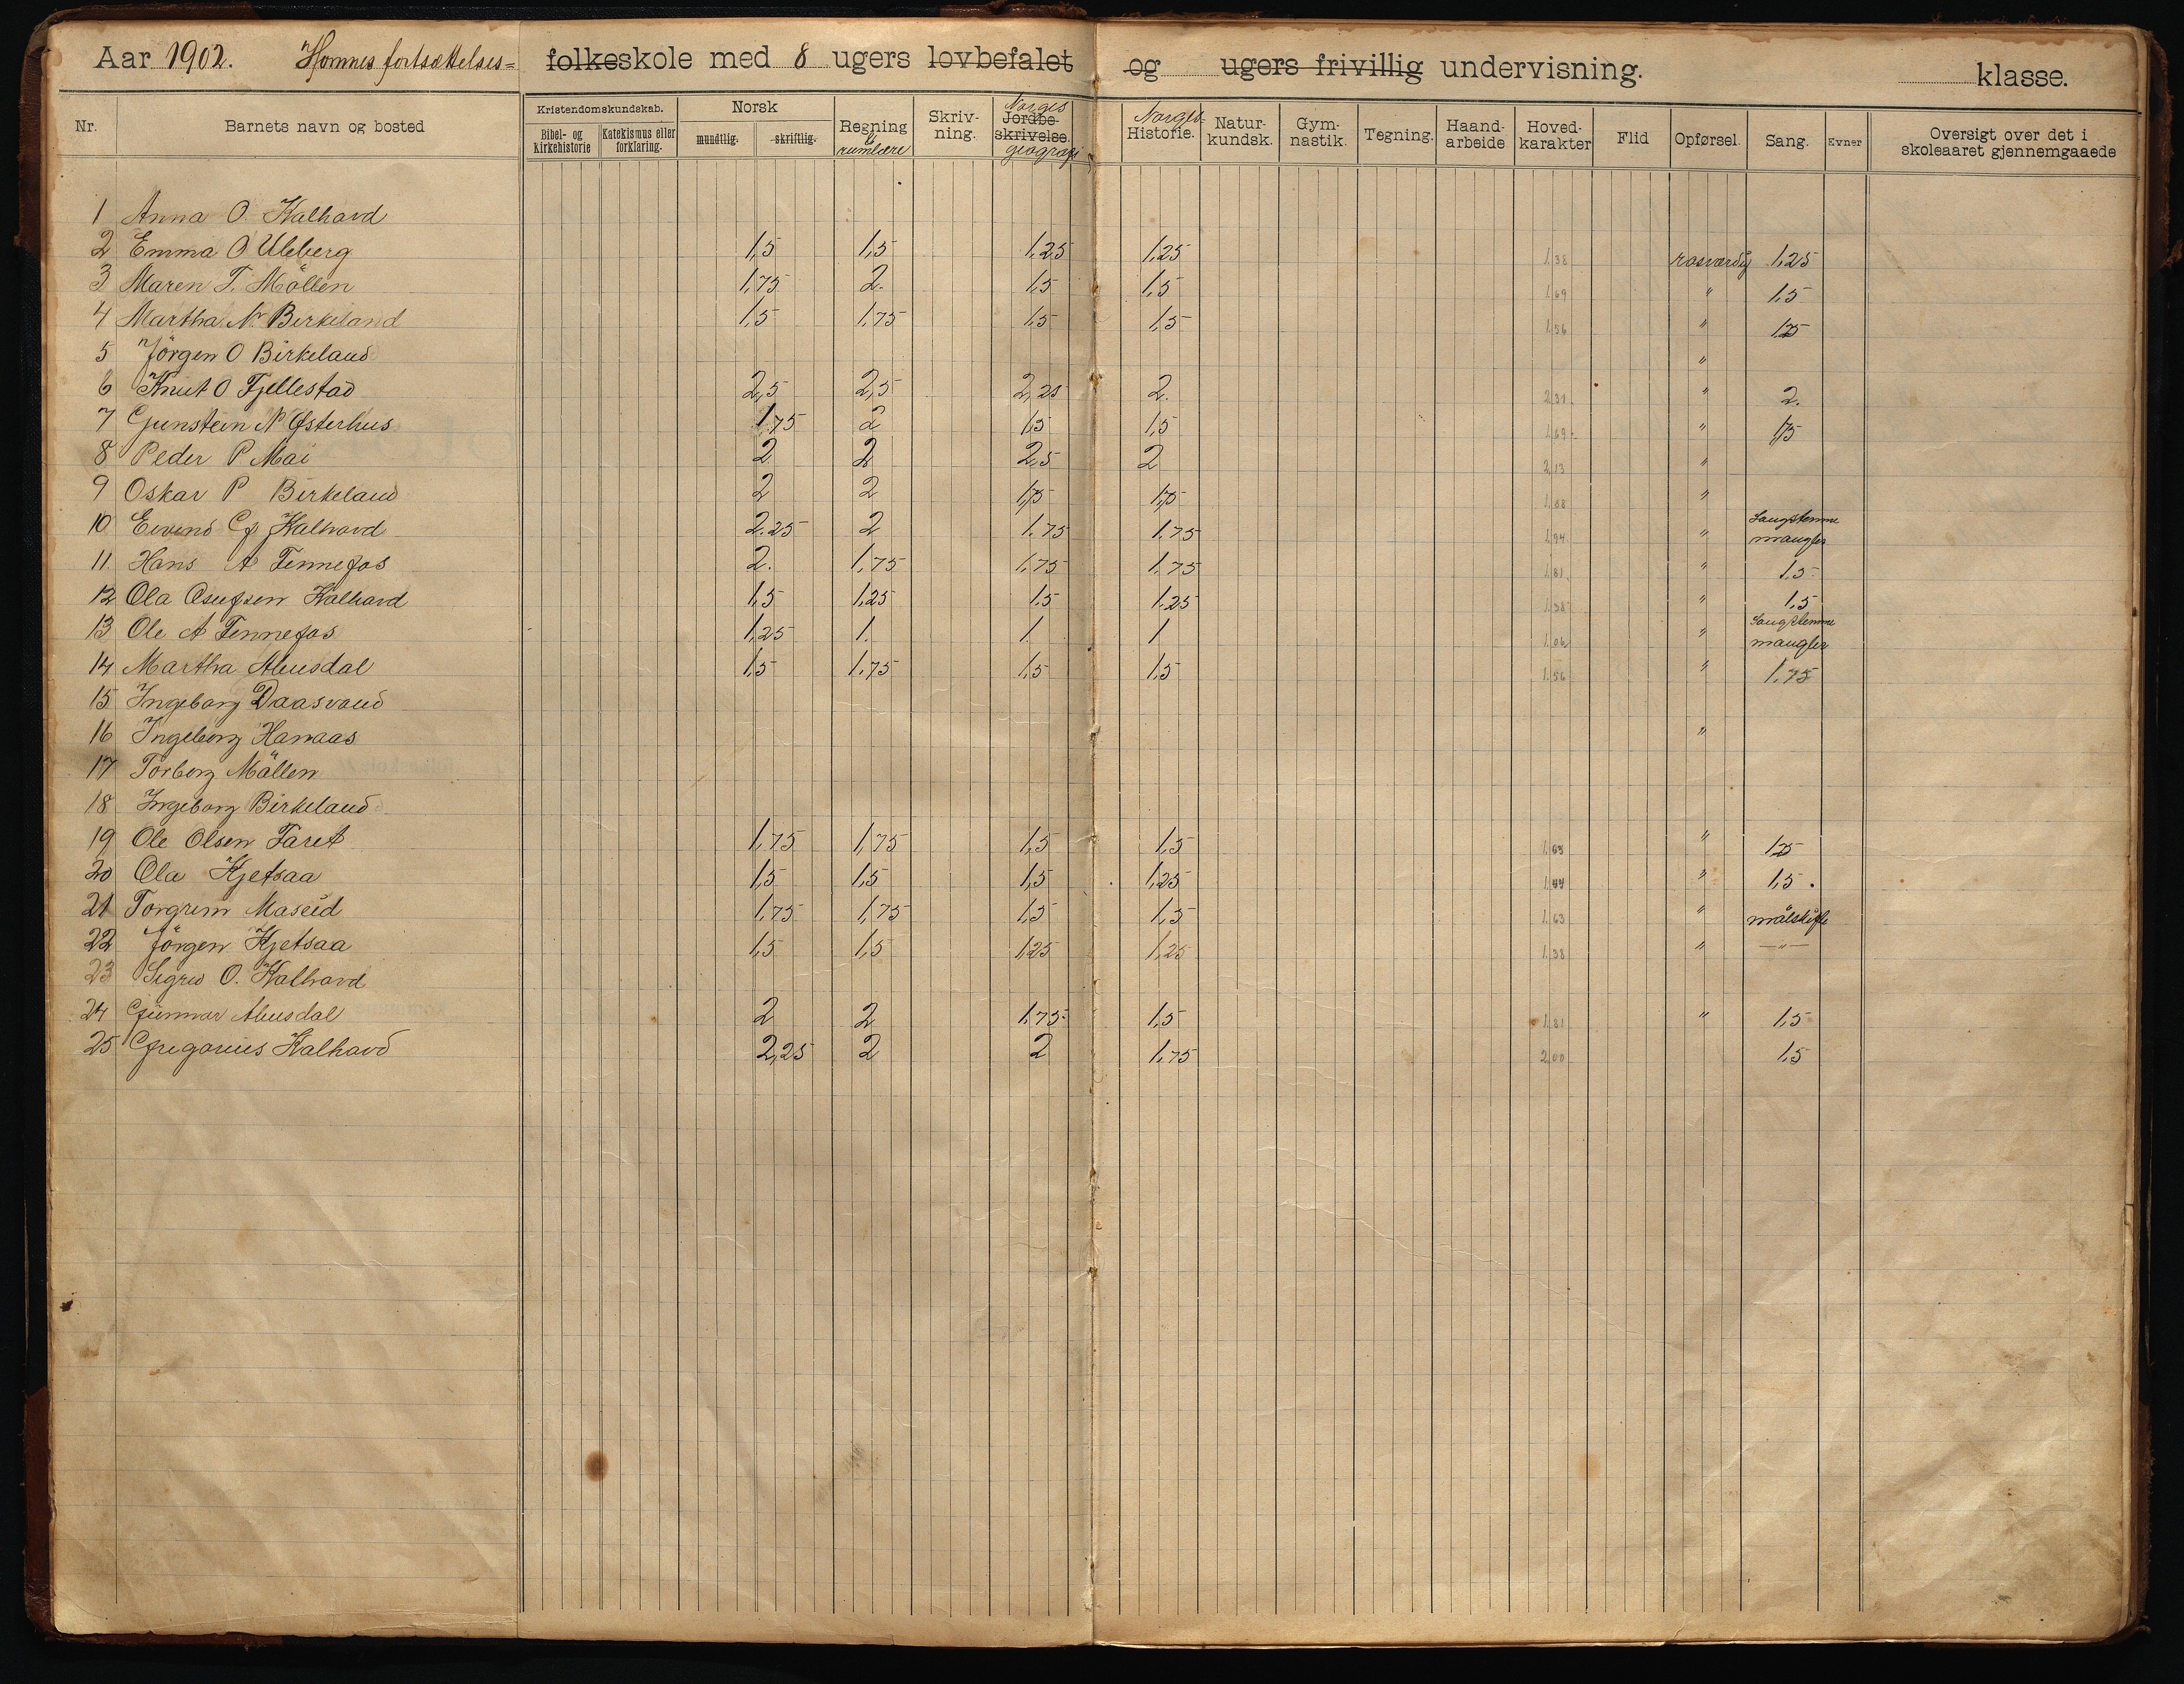 Aar 1902. Homnes fortsættelses= folkeskole med 8 ugers lovbefalet og ugers frivillig undervisning. klasse.
Nr. Barnets navn og bosted Kristendomskundskab. Bibel- og Kirkehistorie Katekismus eller forklaring. Norsk mundtlig. skriftlig. Regning & rumlære Skriv-ning. Norges Jordbe-skrivelse. geografi Norges Historie. Natur-kundsk. Gym-nastik. Tegning. Haand-arbeide Hoved-karakter Flid Opførsel. Sang. Evner Oversigt over det i skoleaaret gjennemgaaede
1 Anna O. Kalhavd
2 Emma O Uleberg 1,5 1,5 1,25 1,25 1,38 rosværdig 1,25
3 Maren T. Möllen 1,75 2. 1,5 1,5 1,69 " 1,5
4 Martha N. Birkeland 1,5 1,75 1,5 1,5 1,56 " 1,25
5 Jörgen O Birkeland "
6 Knut O Fjellestad 2,5 2,5 2,25 2. 2,31 " 2.
7 Gunstein N Østerhus 1,75 2 1,5 1,5 1,69 " 1,75
8 Peder P Mai 2 2 2,5 2 2,13 "
9 Oskar P Birkeland 2 2 1,75 1,75 1,88 "
10 Eivind G Kalhovd 2.25 2 1.75 1.75 1,94 " Sangstemme mangler
11 Hans A Tennefos 2. 1,75 1,75 1,75 1,81 " 1,5
12 Ola Osufsen Kalhavd 1,5 1,25 1,5 1,25 1,38 " 1,5
13 Ole A Tennefos 1,25 1. 1 1 1,06 " Sangstemme mangler
14 Martha Abusdal 1,5 1,75 1,5 1,5 1,56 " 1,75
15 Ingeborg Daasvand
16 Ingeborg Hamaas "
17 Torborg Mällen
18 Ingeborg Birkeland
19 Ole Olsen Faret 1,75 1,75 1,5 1,5 1,63 " 1,25
20 Ola Kjetsaa 1,5 1,5 1,5 1,25 1,44 " 1,5.
21 Torgrim Maseid 1,75 1,75 1,5 1,5 1,63 " målskifte
22 Jörgen Kjetsaa 1,5 1,5 1,25 1,25 1,38 " —"—
23 Sigrid O. Kalhovd
24 Gunnar Abusdal 2 2 1,75 1,5 1,81 " 1,5
25 Gregorius Kalhavd 2,25 2 2 1,75 2,00 1,5